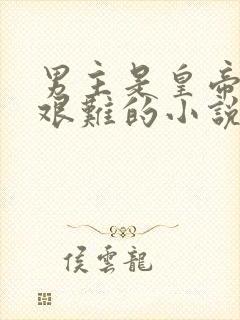 男主是皇帝
艰難的小說
侯雲龍